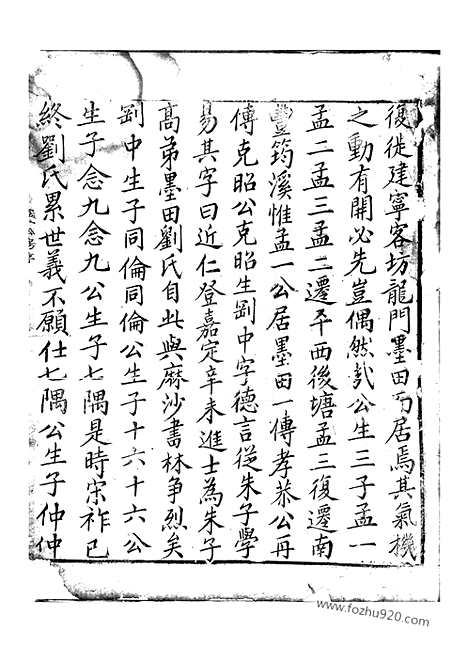 復徙建寧客坊龍門墨田而居焉其氣機
之動有開必先豈偶然㢤公生三子孟一
孟二孟三孟二遷平西後塘孟三復遷南
豐筠溪惟孟一公居墨田一傳孝恭公再
傳克昭公克昭生劉中字德言從朱子學
易其字曰近仁登嘉定辛未進士為朱子
高弟墨田劉氏自此與麻沙書林爭烈矣
劉中生子同倫同倫公生子十六十六公
生子念九念九公生子七隅是時宋祚已
終劉氏累世義不願仕七隅公生子仲仲
www.fozhu920.com